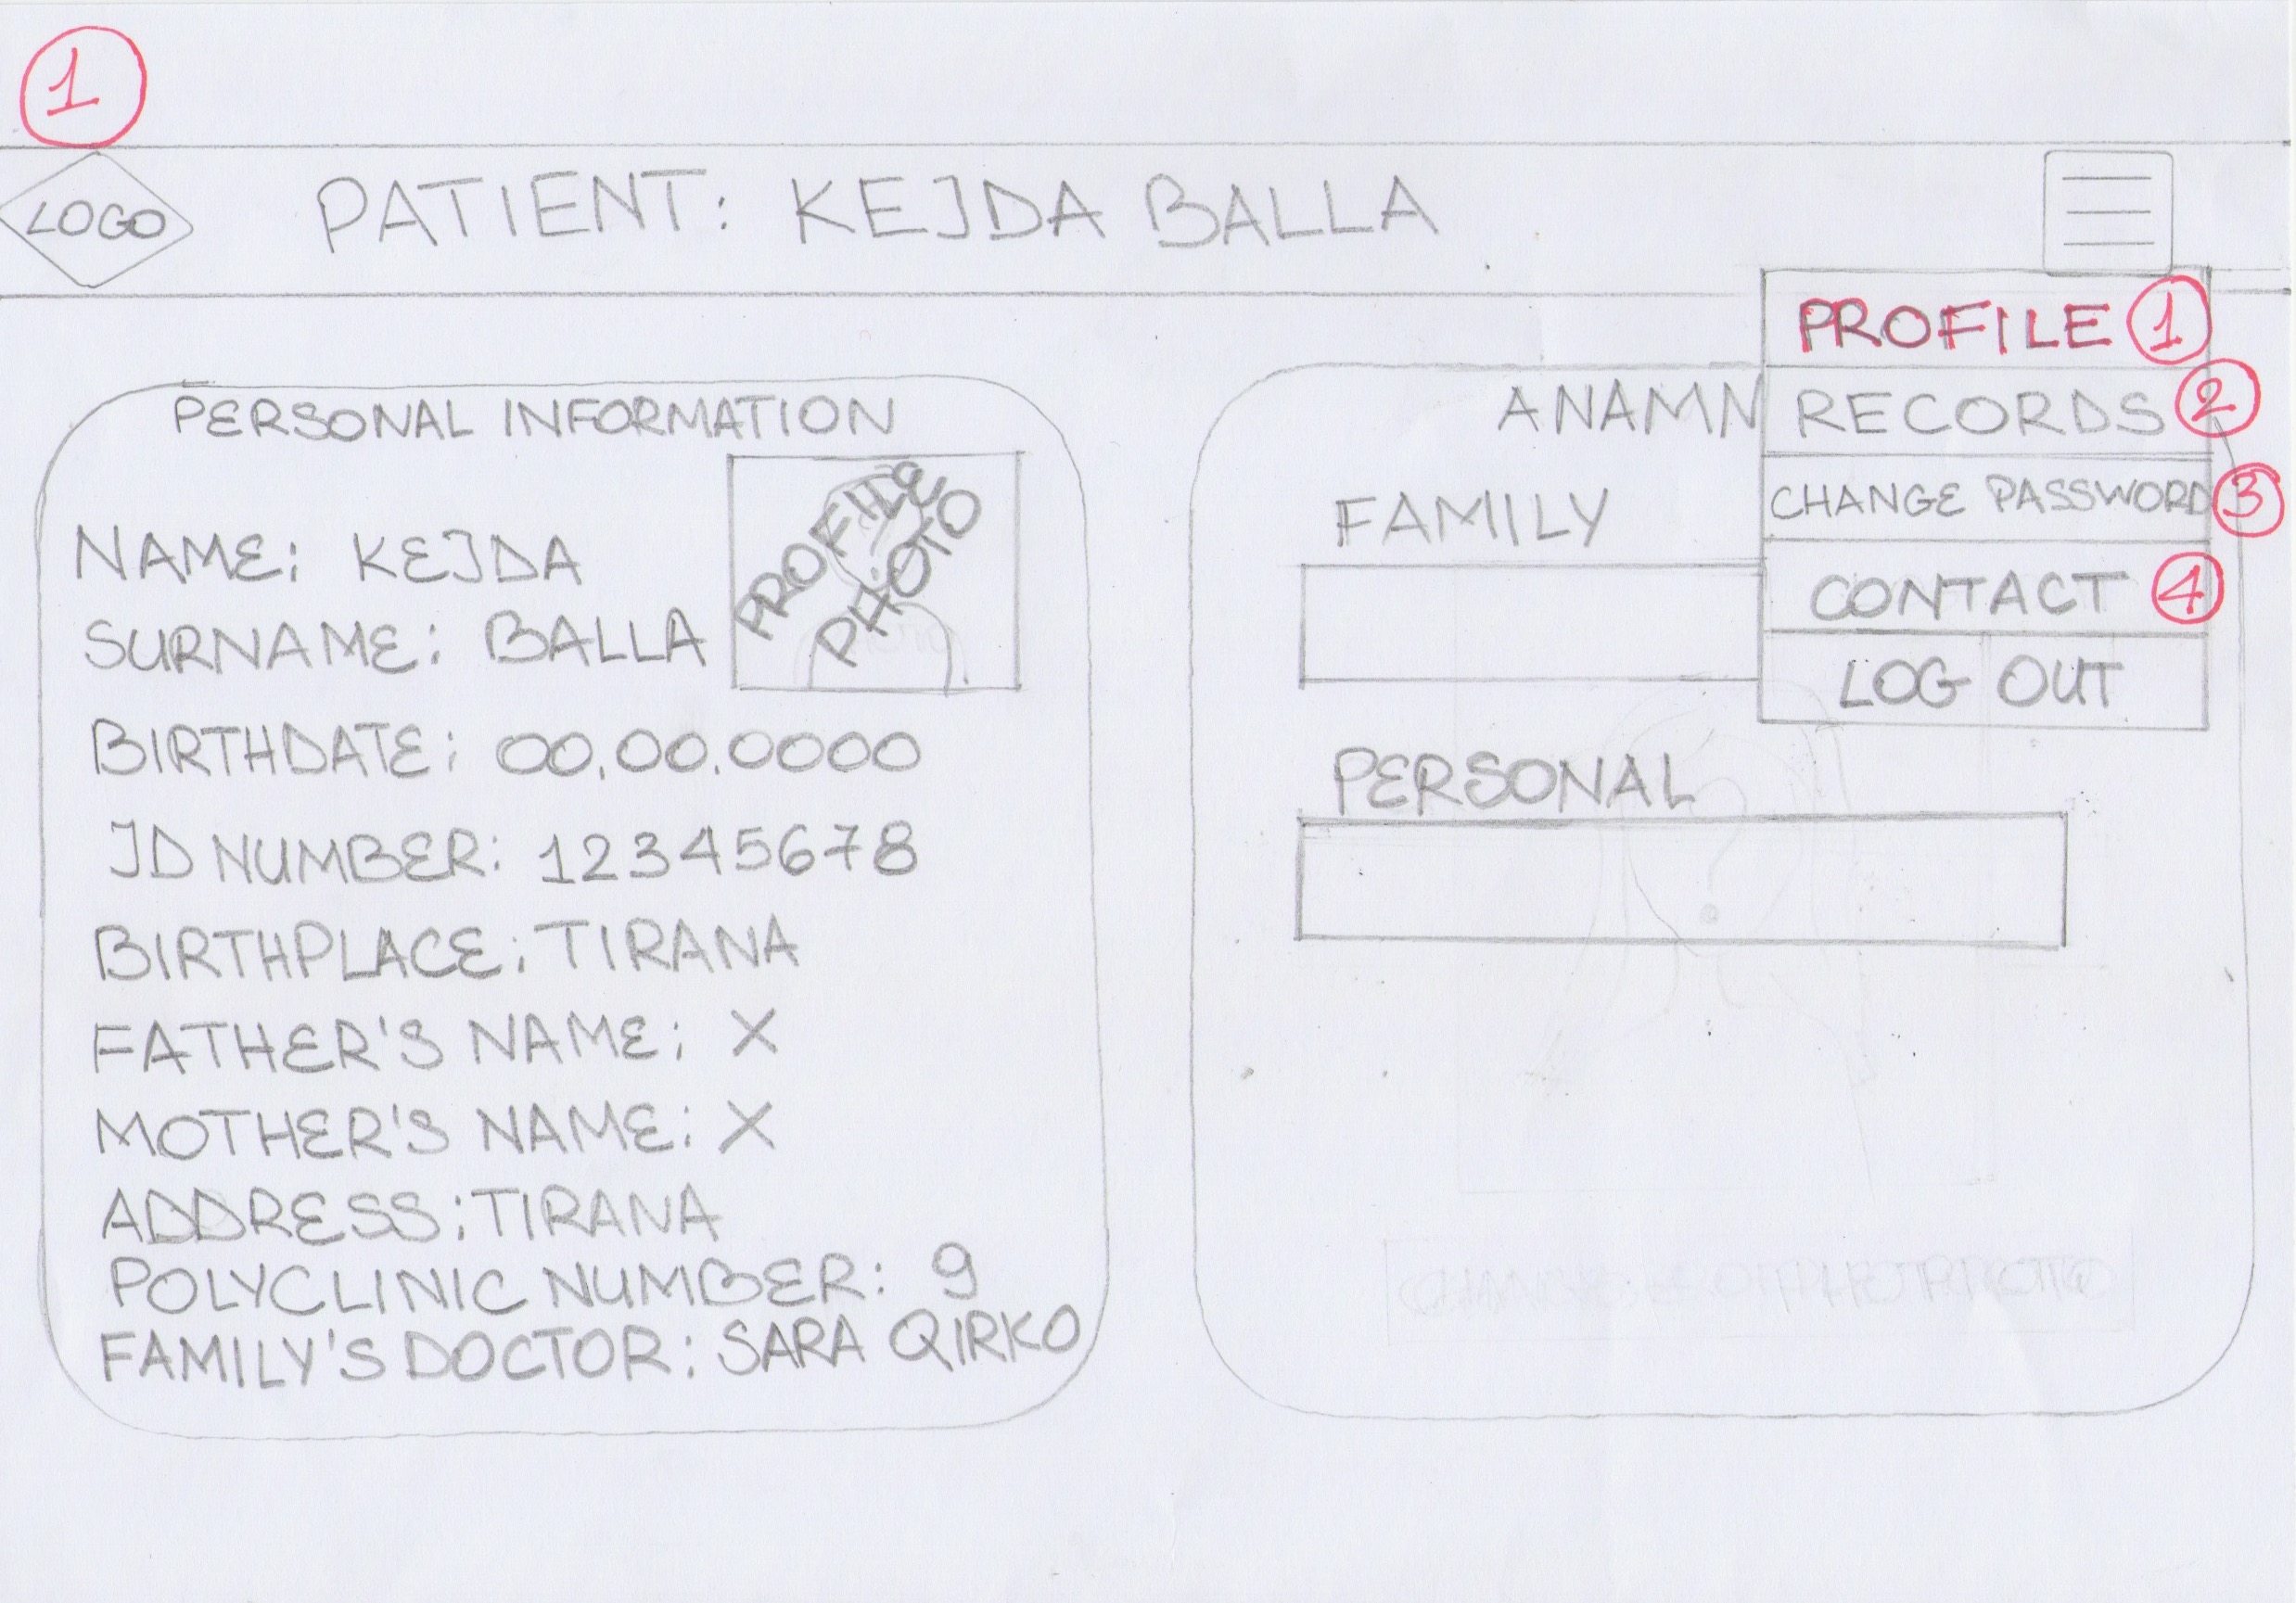 1
LOGO
PATIENT: KEJDA BALLA
PROFILE 1
RECORDS 2
CHANGE PASSWORD 3
CONTACT 4
LOG OUT
PERSONAL INFORMATION
PROFILE
PHOTO
NAME: KEJDA
SURNAME: BALLA
BIRTHDATE: 00.00.0000
ID NUMBER: 12345678
BIRTHPLACE: TIRANA
FATHER'S NAME: X
MOTHER'S NAME: X
ADDRESS: TIRANA
POLYCLINIC NUMBER: 9
FAMILY'S DOCTOR: SARA QIRKO
ANAMN
FAMILY
PERSONAL